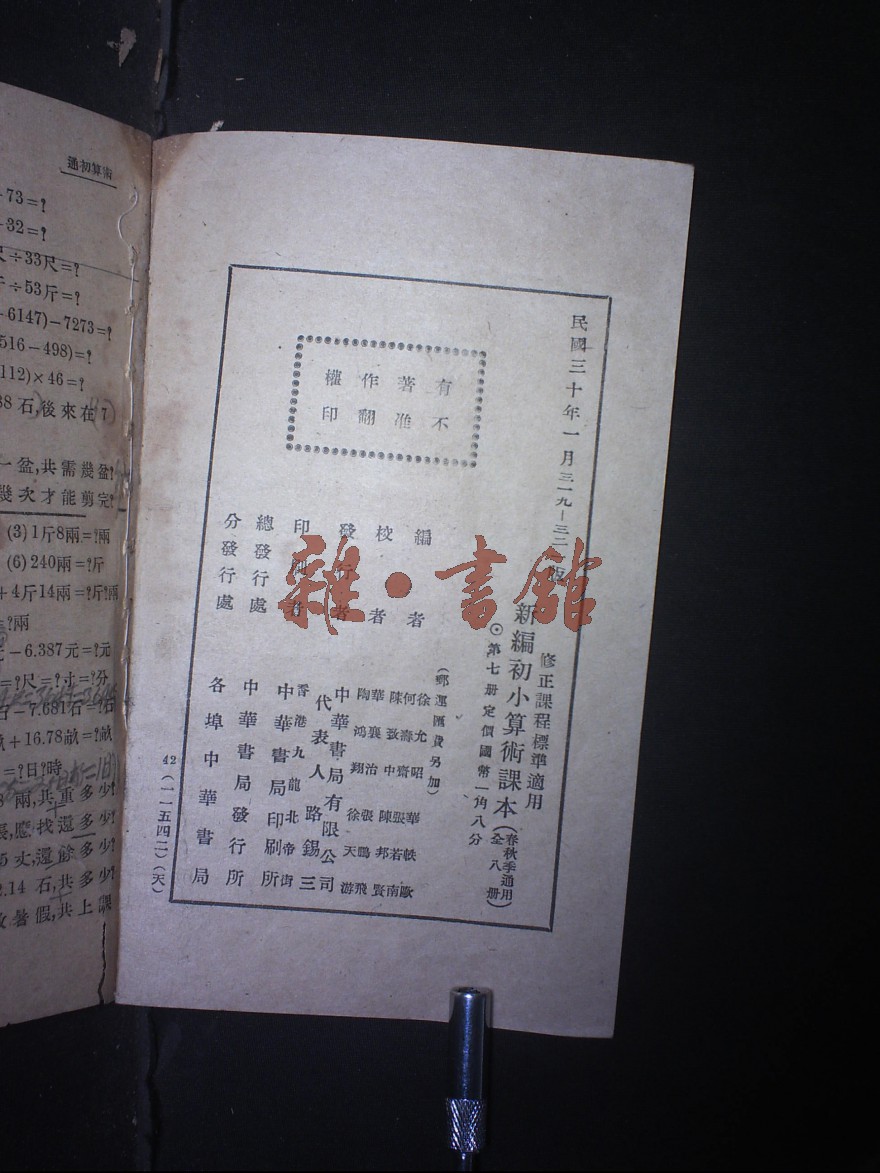 民國三十年一月三一九—三三版
修正課程標準適用
新編初小算術課本(春秋季通用 全八册)
⊙第七册定價國幣一角八分
(郵運匯費另加)
有著作權
不准翻印
編者
徐允昭 華軼歐
何濟齋 張若南
陳致中 陳邦賢
校者
華襄治 張鵬飛
陶鴻翔 徐天游
發行者
中華書局有限公司
代表人 路錫三
印刷者
香港九龍北帝街
中華書局印刷所
總發行處
中華書局發行所
分發行處
各埠中華書局
42(一一五四二)(天)
雜·書館
通初算術
-73=?
-32=?
尺÷33尺=?
÷53斤=?
-6147)-7273=?
516-498)=?
112)×46=?
38石,後來在7
一盆,共需幾盆?
幾次才能剪完?
(3)1斤8兩=?兩
(6)240兩=?斤
+4斤14兩=?斤?兩
=?兩
-6.387元=?元
=?尺=?寸=?分
石-7.681石=?石
畝+16.78畝=?畝
=?日?時
8兩,共重多少?
,應找還多少?
5丈,還餘多少?
2.14石,共多少?
放暑假,共上課